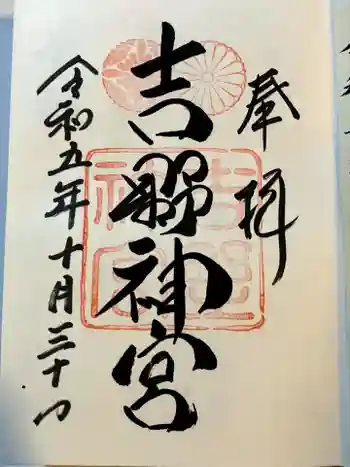 奉拝
吉野神宮
令和五年十月三十日
吉野神宮